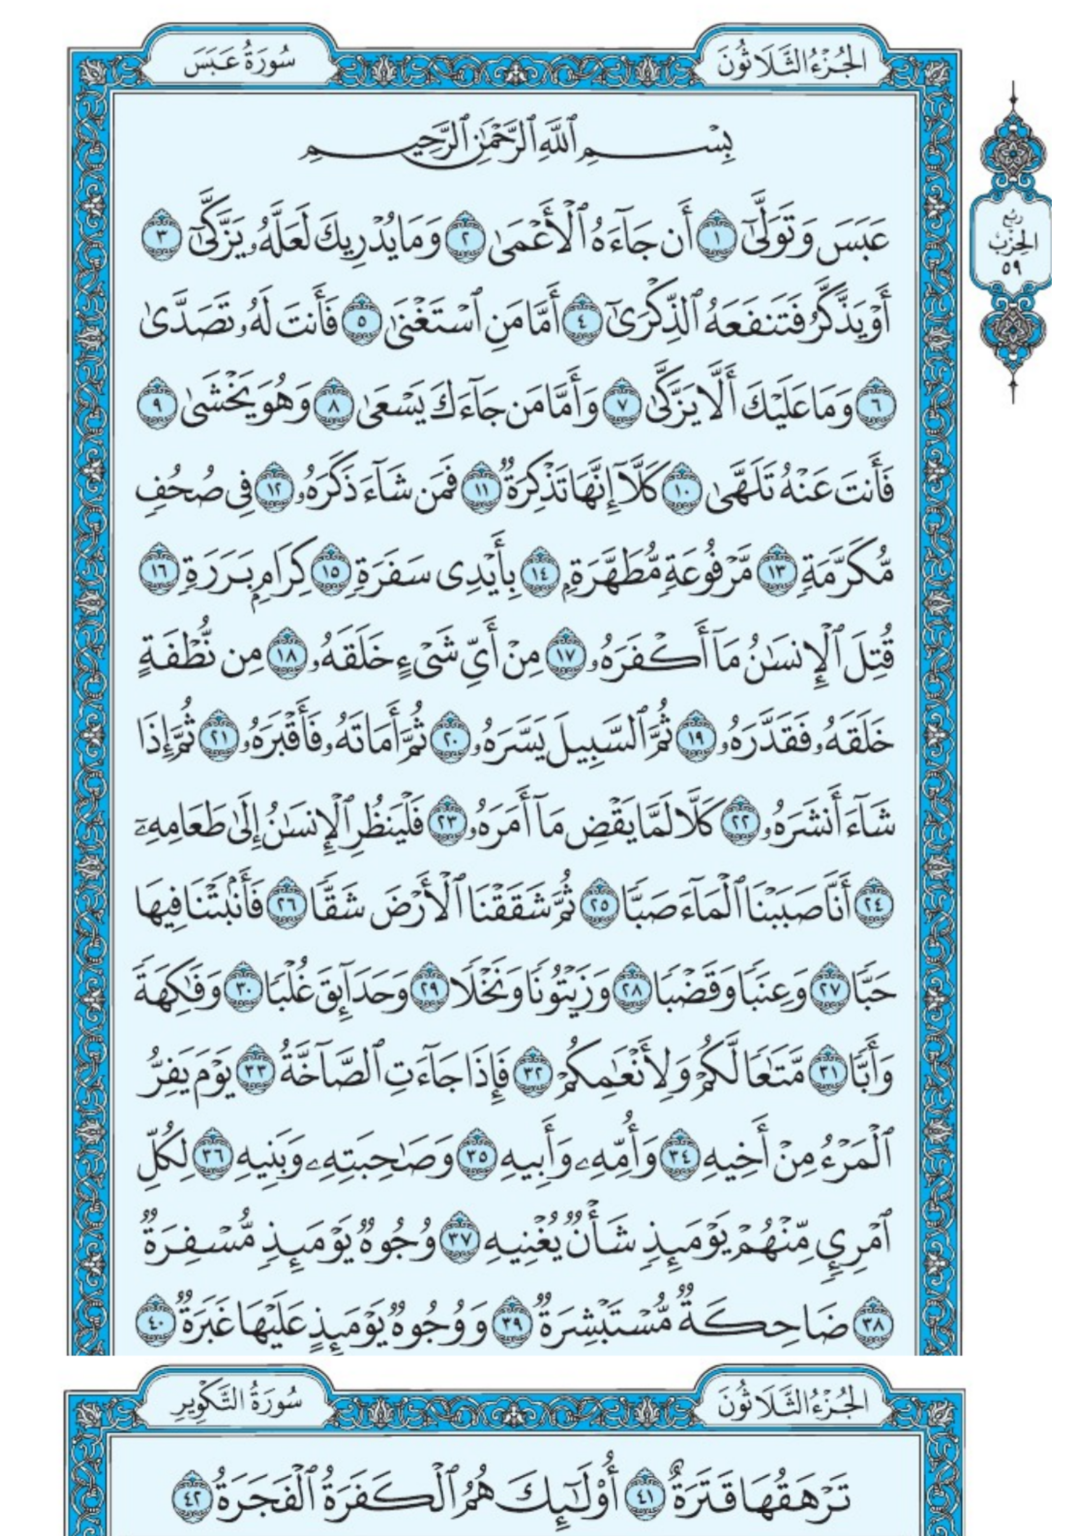 سُورَةُ عَبَسَ
الجُزْءُ الثَّلَاثُونَ
بِسْمِ ٱللَّهِ ٱلرَّحْمَٰنِ ٱلرَّحِيمِ
رُبُع
الحِزْب
٥٩
عَبَسَ وَتَوَلَّىٰٓ ١ أَن جَآءَهُ ٱلْأَعْمَىٰ ٢ وَمَا يُدْرِيكَ لَعَلَّهُۥ يَزَّكَّىٰٓ ٣
أَوْ يَذَّكَّرُ فَتَنفَعَهُ ٱلذِّكْرَىٰٓ ٤ أَمَّا مَنِ ٱسْتَغْنَىٰ ٥ فَأَنتَ لَهُۥ تَصَدَّىٰ
٦ وَمَا عَلَيْكَ أَلَّا يَزَّكَّىٰ ٧ وَأَمَّا مَن جَآءَكَ يَسْعَىٰ ٨ وَهُوَ يَخْشَىٰ ٩
فَأَنتَ عَنْهُ تَلَهَّىٰ ١٠ كَلَّآ إِنَّهَا تَذْكِرَةٌ ١١ فَمَن شَآءَ ذَكَرَهُۥ ١٢ فِى صُحُفٍ
مُّكَرَّمَةٍ ١٣ مَّرْفُوعَةٍ مُّطَهَّرَةٍۭ ١٤ بِأَيْدِى سَفَرَةٍ ١٥ كِرَامٍۭ بَرَرَةٍ ١٦
قُتِلَ ٱلْإِنسَٰنُ مَآ أَكْفَرَهُۥ ١٧ مِنْ أَىِّ شَىْءٍ خَلَقَهُۥ ١٨ مِن نُّطْفَةٍ
خَلَقَهُۥ فَقَدَّرَهُۥ ١٩ ثُمَّ ٱلسَّبِيلَ يَسَّرَهُۥ ٢٠ ثُمَّ أَمَاتَهُۥ فَأَقْبَرَهُۥ ٢١ ثُمَّ إِذَا
شَآءَ أَنشَرَهُۥ ٢٢ كَلَّا لَمَّا يَقْضِ مَآ أَمَرَهُۥ ٢٣ فَلْيَنظُرِ ٱلْإِنسَٰنُ إِلَىٰ طَعَامِهِۦٓ
٢٤ أَنَّا صَبَبْنَا ٱلْمَآءَ صَبًّا ٢٥ ثُمَّ شَقَقْنَا ٱلْأَرْضَ شَقًّا ٢٦ فَأَنۢبَتْنَا فِيهَا
حَبًّا ٢٧ وَعِنَبًا وَقَضْبًا ٢٨ وَزَيْتُونًا وَنَخْلًا ٢٩ وَحَدَآئِقَ غُلْبًا ٣٠ وَفَٰكِهَةً
وَأَبًّا ٣١ مَّتَٰعًا لَّكُمْ وَلِأَنْعَٰمِكُمْ ٣٢ فَإِذَا جَآءَتِ ٱلصَّآخَّةُ ٣٣ يَوْمَ يَفِرُّ
ٱلْمَرْءُ مِنْ أَخِيهِ ٣٤ وَأُمِّهِۦ وَأَبِيهِ ٣٥ وَصَٰحِبَتِهِۦ وَبَنِيهِ ٣٦ لِكُلِّ
ٱمْرِئٍ مِّنْهُمْ يَوْمَئِذٍ شَأْنٌ يُغْنِيهِ ٣٧ وُجُوهٌ يَوْمَئِذٍ مُّسْفِرَةٌ
٣٨ ضَاحِكَةٌ مُّسْتَبْشِرَةٌ ٣٩ وَوُجُوهٌ يَوْمَئِذٍ عَلَيْهَا غَبَرَةٌ ٤٠
سُورَةُ التَّكْوِيرِ
الجُزْءُ الثَّلَاثُونَ
تَرْهَقُهَا قَتَرَةٌ ٤١ أُو۟لَٰٓئِكَ هُمُ ٱلْكَفَرَةُ ٱلْفَجَرَةُ ٤٢